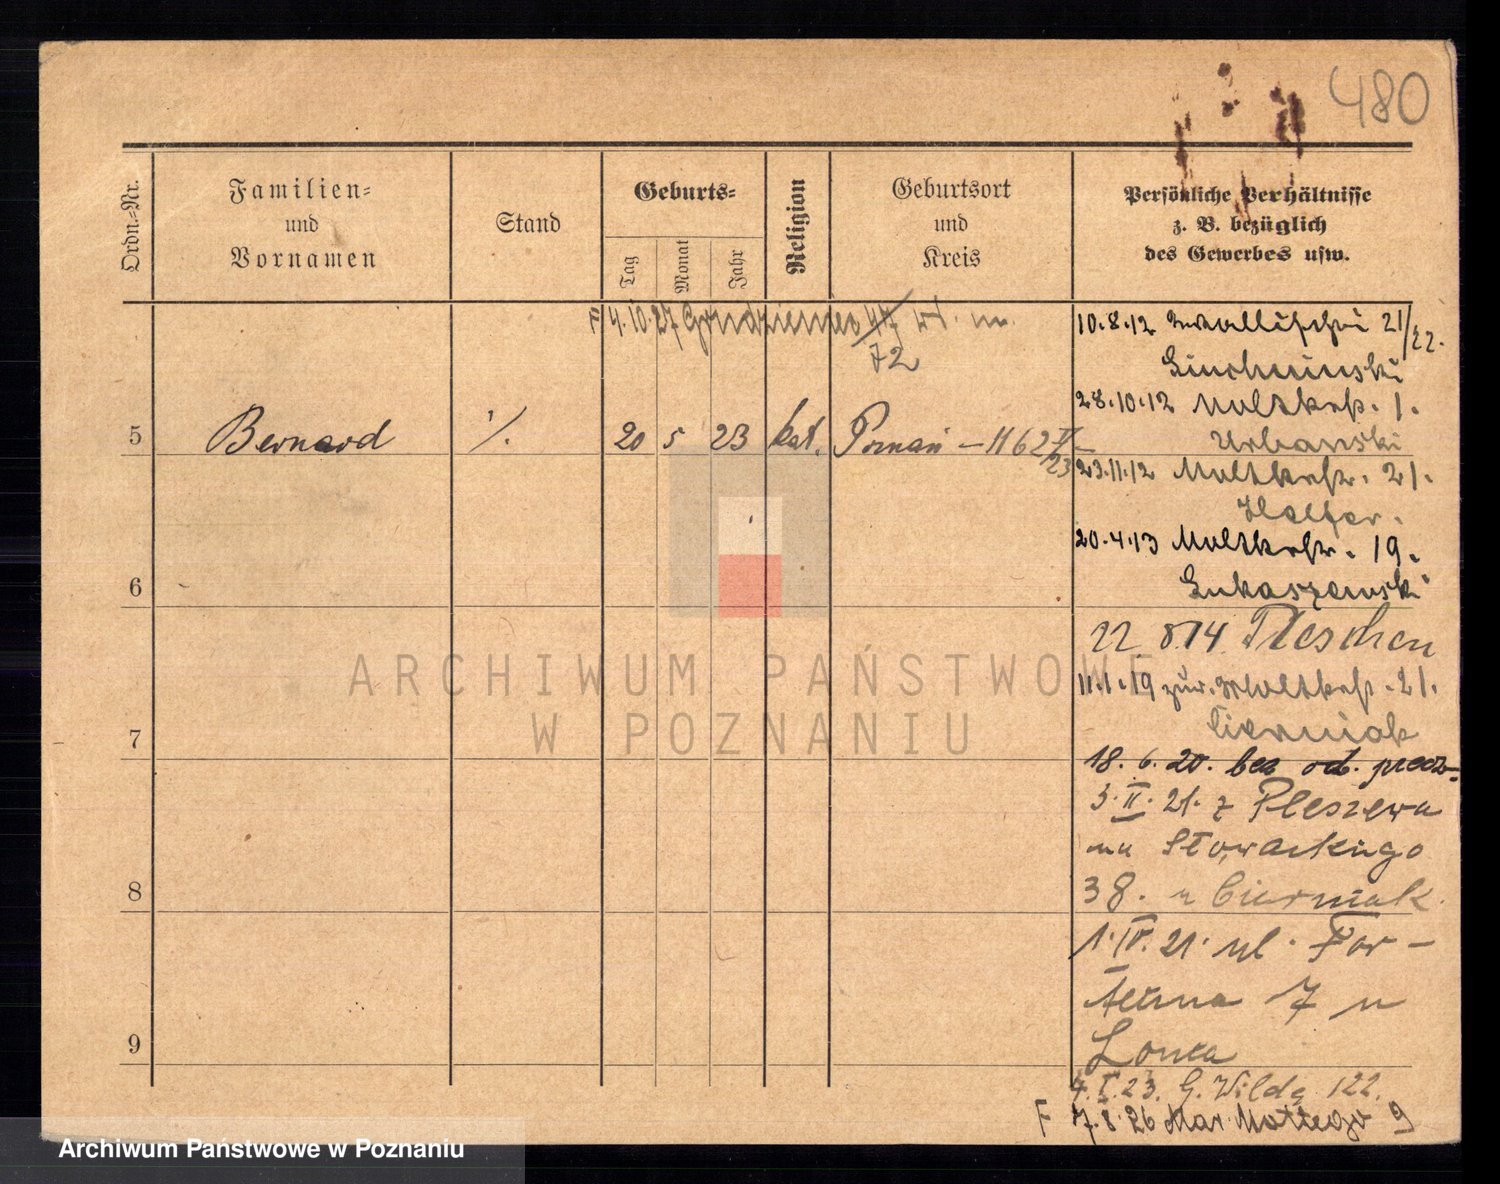 480
Ordn.-Nr.
Familien-
und
Vornamen
Stand
Geburts-
Tag
Monat
Jahr
Religion
Geburtsort
und
Kreis
Persönliche Verhältnisse
z. B. bezüglich
des Gewerbes usw.
F 4.10.27 47 wł. m.
72
5 Bernard ·/. 20 5 23 kat. Poznań – 1162 V/23
6
7
8
9
10.8.12 Wallischei 21/22.
28.10.12 Moltkestr. 1.
Urbanski
23.11.12 Moltkestr. 21.
20.4.13 Moltkestr. 19.
Lukaszewski
22.8.14 Pleschen
11.1.19 zur. Moltkestr. 21.
Cierniak
18. 6. 20. bez od. przez
3. II. 21. z Pleszewa
na Słowackiego
38. u Cierniak.
1. IV. 21. ul. For-
teczna 7 u
4. I. 23. G. Wilda 122.
F 7.8.26 Mar. Mottego 9
ARCHIWUM PAŃSTWOWE
W POZNANIU
Archiwum Państwowe w Poznaniu